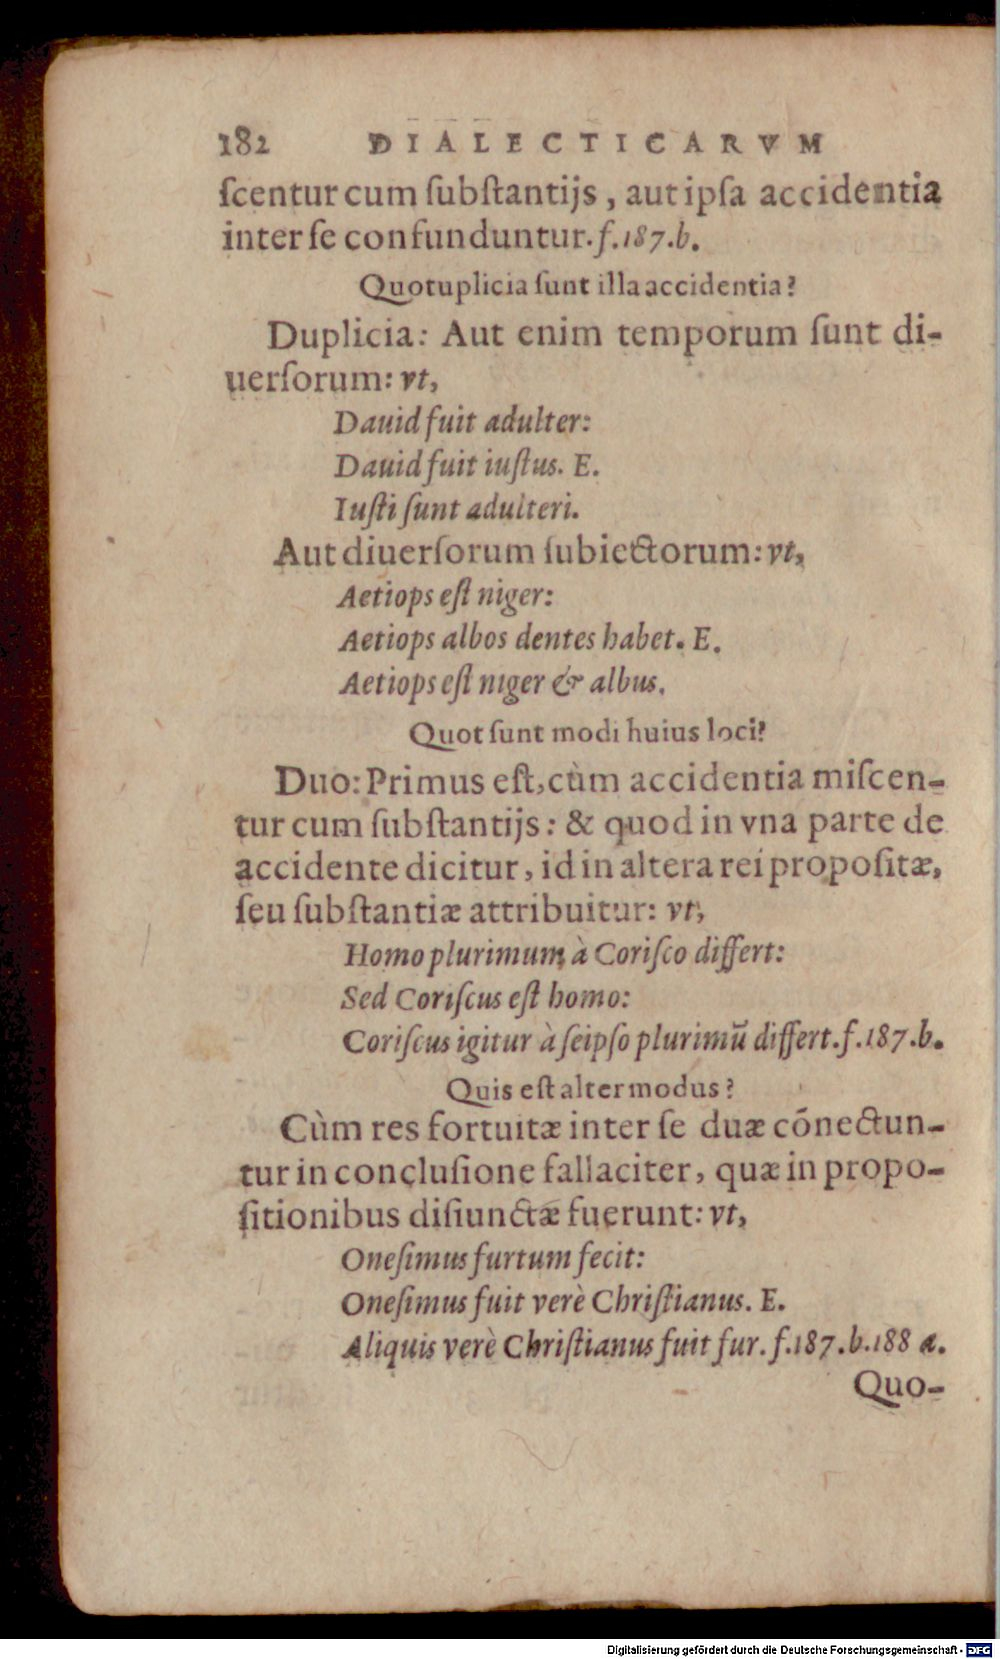 182 DIALECTICARVM
ſcentur cum ſubſtantijs, aut ipſa accidentia
inter ſe confunduntur. f.187.b.
Quotuplicia ſunt illa accidentia?
Duplicia: Aut enim temporum ſunt di-
uerſorum: vt,
Dauid fuit adulter:
Dauid fuit iuſtus. E.
Iuſti ſunt adulteri.
Aut diuerſorum ſubiectorum: vt,
Aetiops eſt niger:
Aetiops albos dentes habet. E.
Aetiops eſt niger & albus.
Quot ſunt modi huius loci?
Duo: Primus eſt, cùm accidentia miſcen-
tur cum ſubſtantijs: & quod in vna parte de
accidente dicitur, id in altera rei propoſitæ,
ſeu ſubſtantiæ attribuitur: vt,
Homo plurimum à Coriſco differt:
Sed Coriſcus eſt homo:
Coriſcus igitur à ſeipſo plurimū differt. f.187.b.
Quis eſt alter modus?
Cùm res fortuitæ inter ſe duæ cōnectun-
tur in concluſione fallaciter, quæ in propo-
ſitionibus diſiunctæ fuerunt: vt,
Oneſimus furtum fecit:
Oneſimus fuit verè Chriſtianus. E.
Aliquis verè Chriſtianus fuit fur. f.187.b.188 a.
Quo-
Digitalisierung gefördert durch die Deutsche Forschungsgemeinschaft - DFG